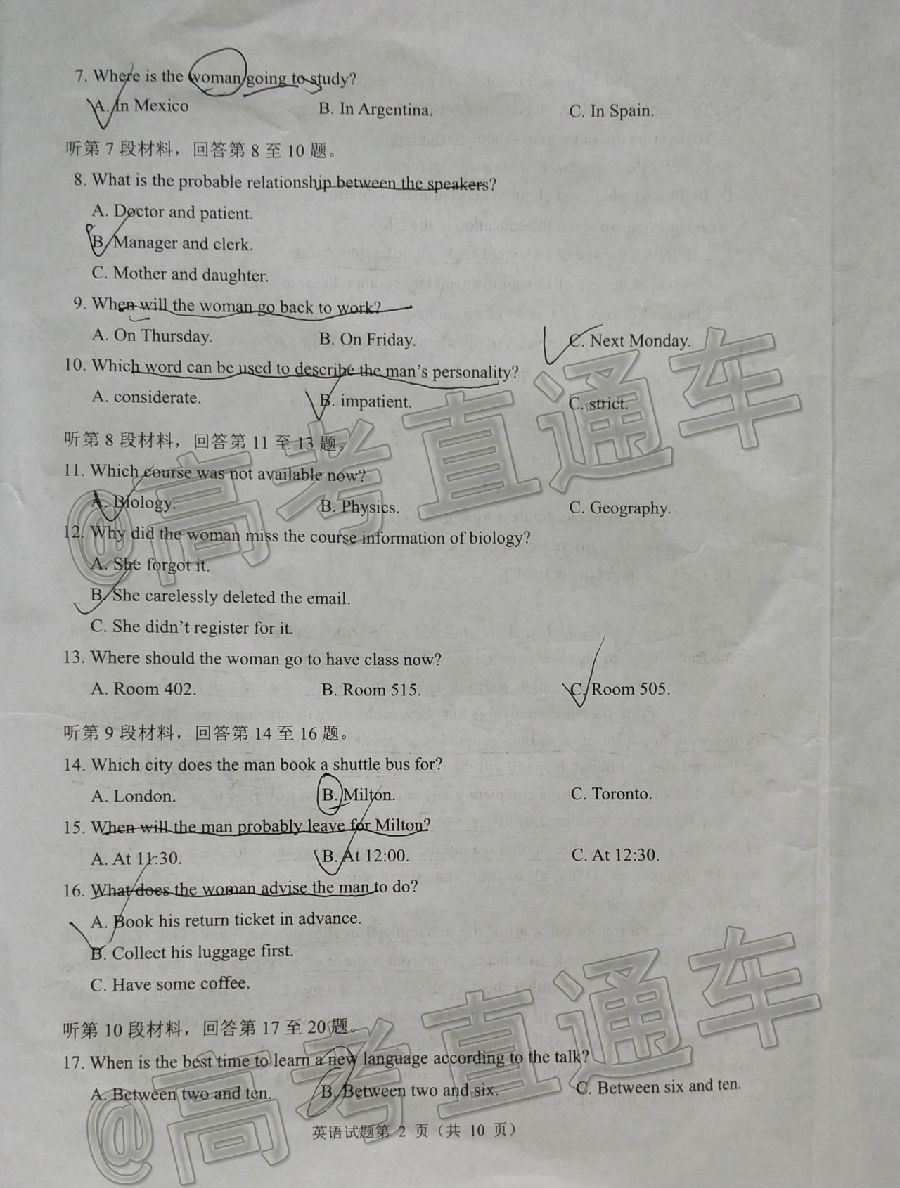 7. Where is the woman going to study?
A. In Mexico B. In Argentina. C. In Spain.
听第 7 段材料，回答第 8 至 10 题。
8. What is the probable relationship between the speakers?
A. Doctor and patient.
B. Manager and clerk.
C. Mother and daughter.
9. When will the woman go back to work?
A. On Thursday. B. On Friday. C. Next Monday.
10. Which word can be used to describe the man's personality?
A. considerate. B. impatient. C. strict.
听第 8 段材料，回答第 11 至 13 题。
11. Which course was not available now?
A. Biology. B. Physics. C. Geography.
12. Why did the woman miss the course information of biology?
A. She forgot it.
B. She carelessly deleted the email.
C. She didn't register for it.
13. Where should the woman go to have class now?
A. Room 402. B. Room 515. C. Room 505.
听第 9 段材料，回答第 14 至 16 题。
14. Which city does the man book a shuttle bus for?
A. London. B. Milton. C. Toronto.
15. When will the man probably leave for Milton?
A. At 11:30. B. At 12:00. C. At 12:30.
16. What does the woman advise the man to do?
A. Book his return ticket in advance.
B. Collect his luggage first.
C. Have some coffee.
听第 10 段材料，回答第 17 至 20 题。
17. When is the best time to learn a new language according to the talk?
A. Between two and ten. B. Between two and six. C. Between six and ten.
英语试题第 2 页（共 10 页）
@高考直通车
@高考直通车